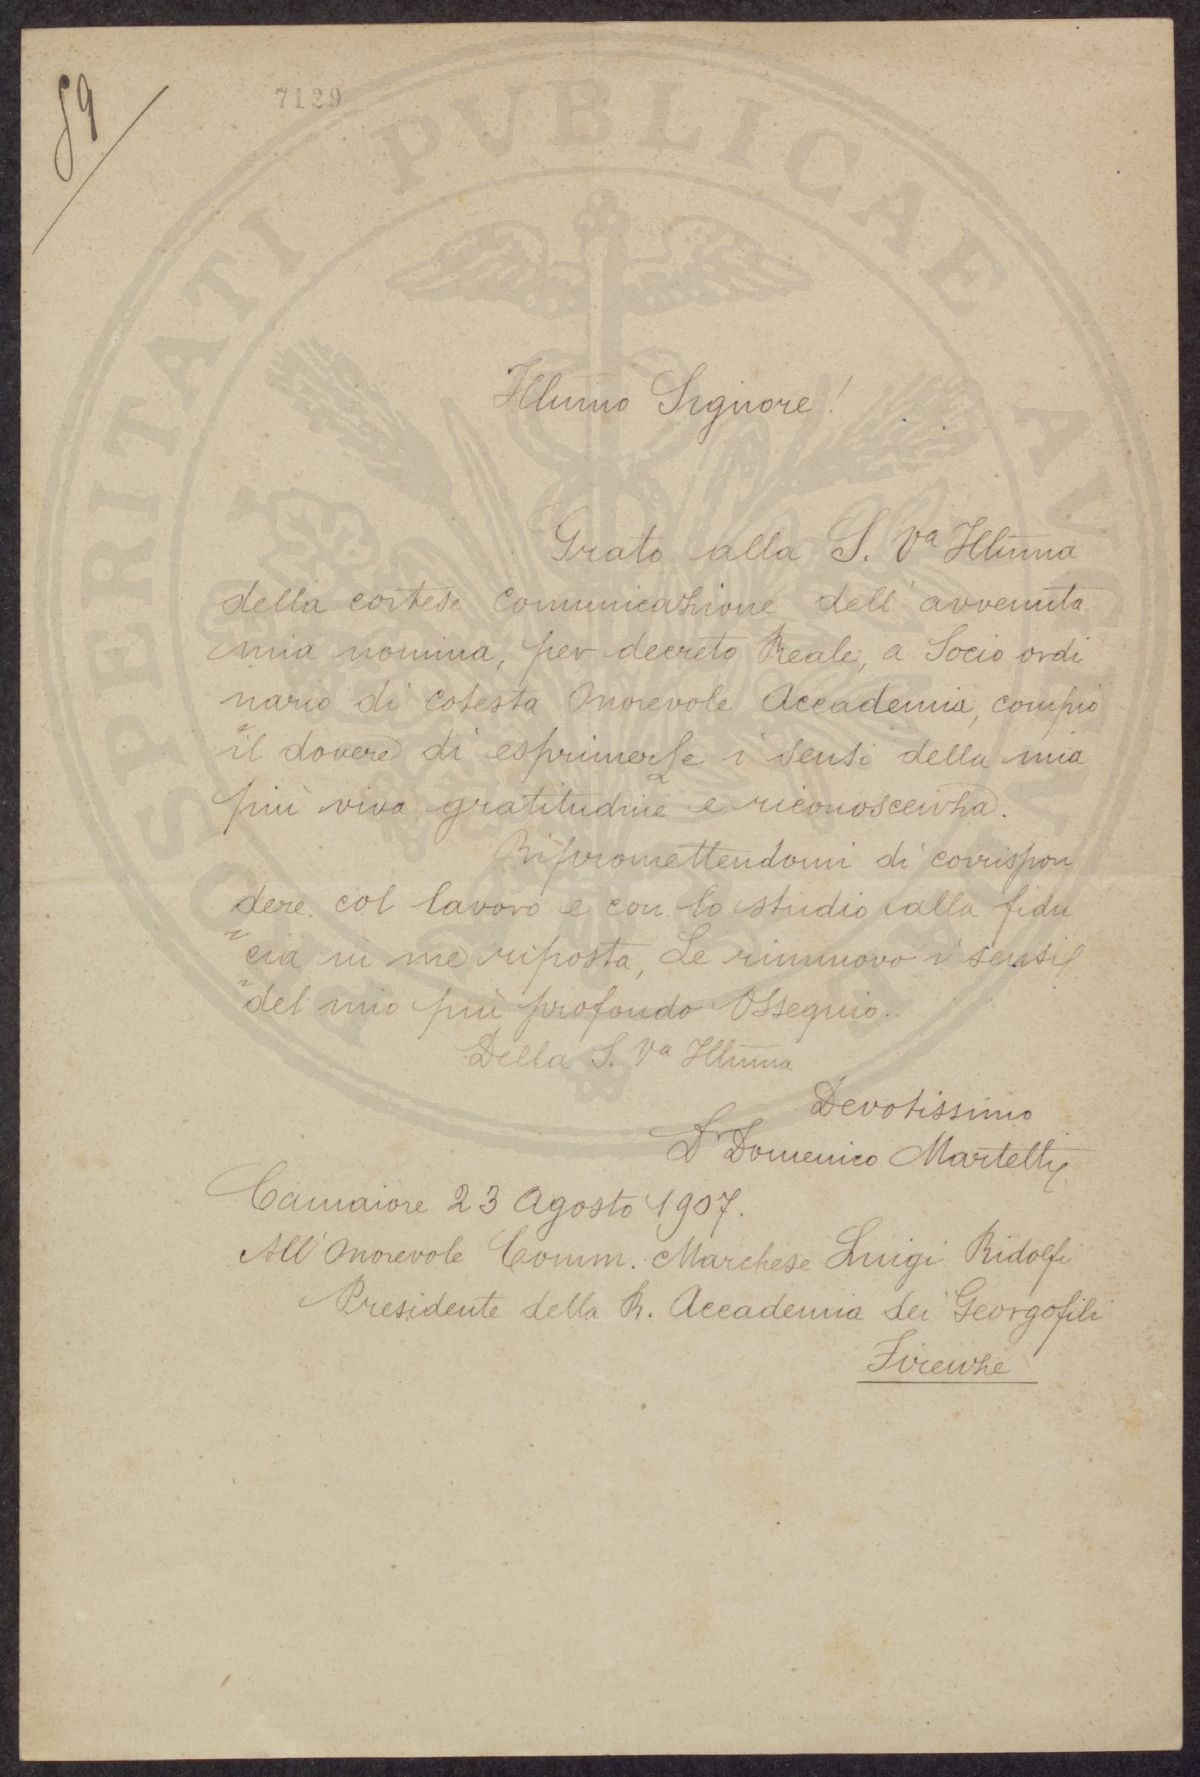 89
7129
Illūmo Signore!
Grato alla S. Vª Illūma
della cortese comunicazione dell'avvenuta
mia nomina, per decreto Reale, a Socio ordi
nario di cotesta Onorevole Accademia, compio
"il dovere di esprimerLe i sensi della mia
più viva gratitudine e riconoscenza.
Ripromettendomi di corrispon
dere col lavoro e con lo studio alla fidu
"cia in me riposta, Le rinnuovo i sensi
"del mio più profondo Ossequio.
Della S. Vª Illūma
Devotissimo
Dr Domenico Martelli
Camaiore 23 Agosto 1907.
All'Onorevole Comm. Marchese Luigi Ridolfi
Presidente della R. Accademia dei Georgofili
Firenze
PROSPERITATI PVBLICAE AVGENDAE